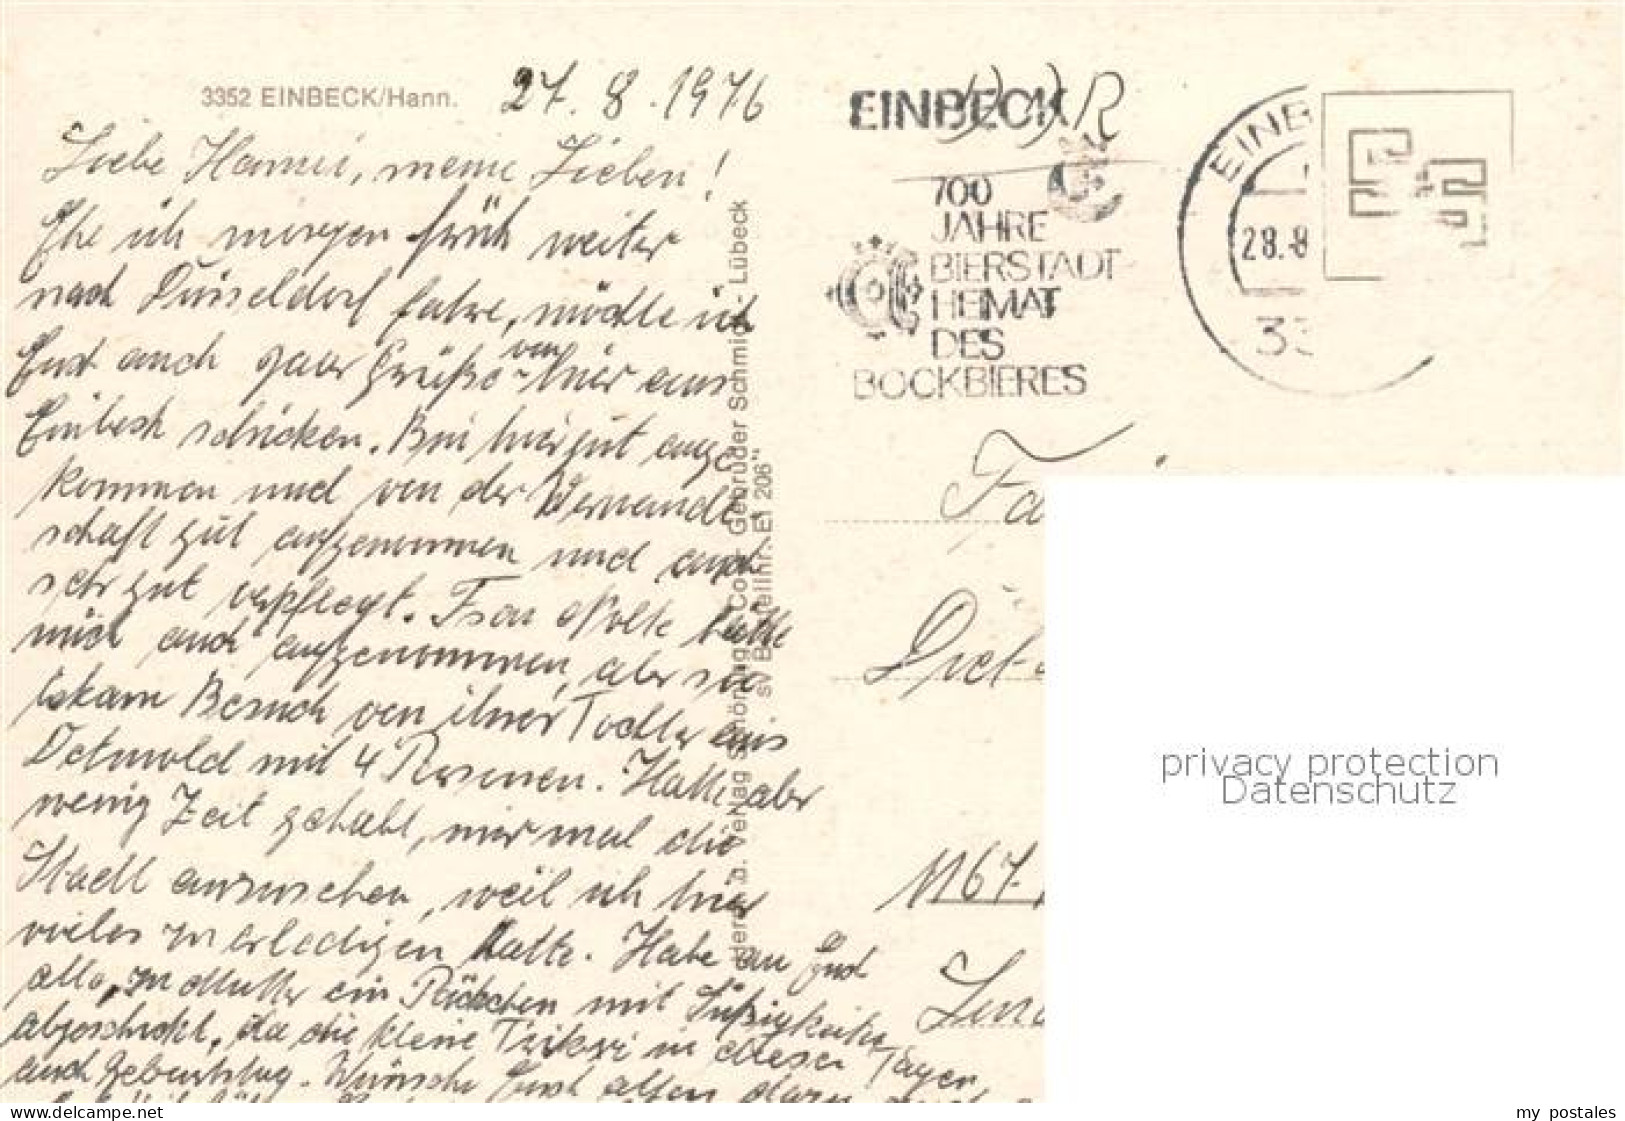 3352 EINBECK/Hann.
27.8.1976
Liebe Hanni, meine Lieben!
Ehe ich morgen früh weiter
nach Düsseldorf fahre, möchte ich
Euch auch paar Grüße von hier aus
Einbeck schicken. Bin hier gut ange-
kommen und von der Verwandt-
schaft gut aufgenommen und auch
sehr gut verpflegt. Frau Nolte hätte
mich auch aufgenommen, aber sie
bekam Besuch von ihrer Tochter aus
Detmold mit 4 Personen. Hatte aber
wenig Zeit gehabt, mir mal die
Stadt anzusehen, weil ich hier
vieles zu erledigen hatte. Habe an Euch
alle, zu Mutter ein Päckchen mit Süßigkeiten
abgeschickt, da die kleine in diesen Tagen
auch Geburtstag. Wünsche Euch allen dazu
Schöning & Co + Gebrüder Schmidt, Lübeck
EI 206
DDR
EINBECK
700
JAHRE
BIERSTADT
HEIMAT
DES
BOCKBIERES
EINB
28.-8
33
Fa
Diet-
1167
privacy protection
Datenschutz
my_postales